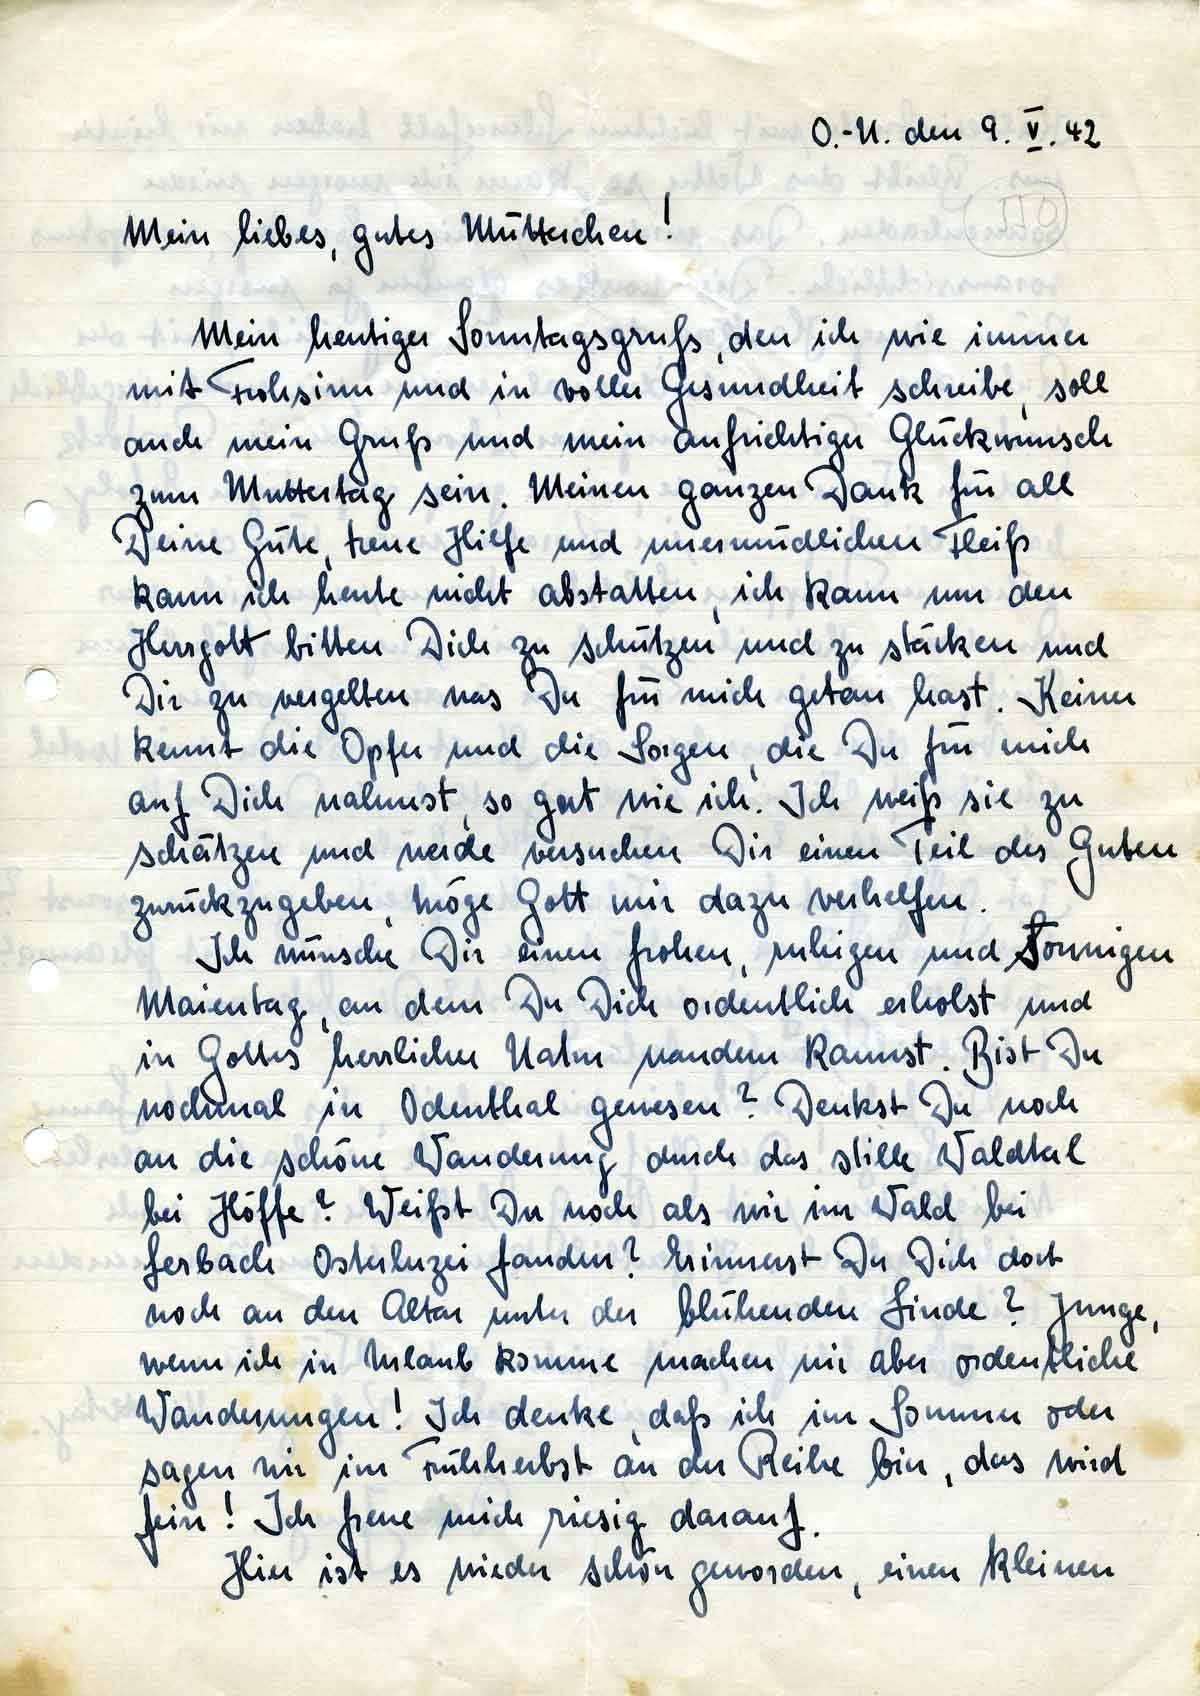 O.-U. den 9. V. 42
Mein liebes, gutes Mütterchen!
Mein heutiger Sonntagsgruß, den ich wie immer
mit Frohsinn und in voller Gesundheit schreibe, soll
auch mein Gruß und mein aufrichtiger Glückwunsch
zum Muttertag sein. Meinen ganzen Dank für all
Deine Güte, treue Hilfe und unermüdlichen Fleiß
kann ich heute nicht abstatten, ich kann nur den
Herrgott bitten Dich zu schützen und zu stärken und
Dir zu vergelten was Du für mich getan hast. Keiner
kennt die Opfer und die Sorgen, die Du für mich
auf Dich nahmst, so gut wie ich. Ich weiß sie zu
schätzen und werde versuchen Dir einen Teil des Guten
zurückzugeben, möge Gott mir dazu verhelfen.
Ich wünsche Dir einen frohen, ruhigen und sonnigen
Maientag, an dem Du Dich ordentlich erholst und
in Gottes herrlicher Natur wandern kannst. Bist Du
nochmal in Odenthal gewesen? Denkst Du noch
an die schöne Wanderung durch das stille Waldtal
bei Höffe? Weißt Du noch als wir im Wald bei
Lerbach Osterluzei fanden? Erinnerst Du Dich dort
noch an den Altar unter der blühenden Linde? Junge,
wenn ich in Urlaub komme machen wir aber ordentliche
Wanderungen! Ich denke, daß ich im Sommer oder
sagen wir im Frühherbst an der Reihe bin, das wird
fein! Ich freue mich riesig darauf.
Hier ist es wieder schön geworden, einen kleinen